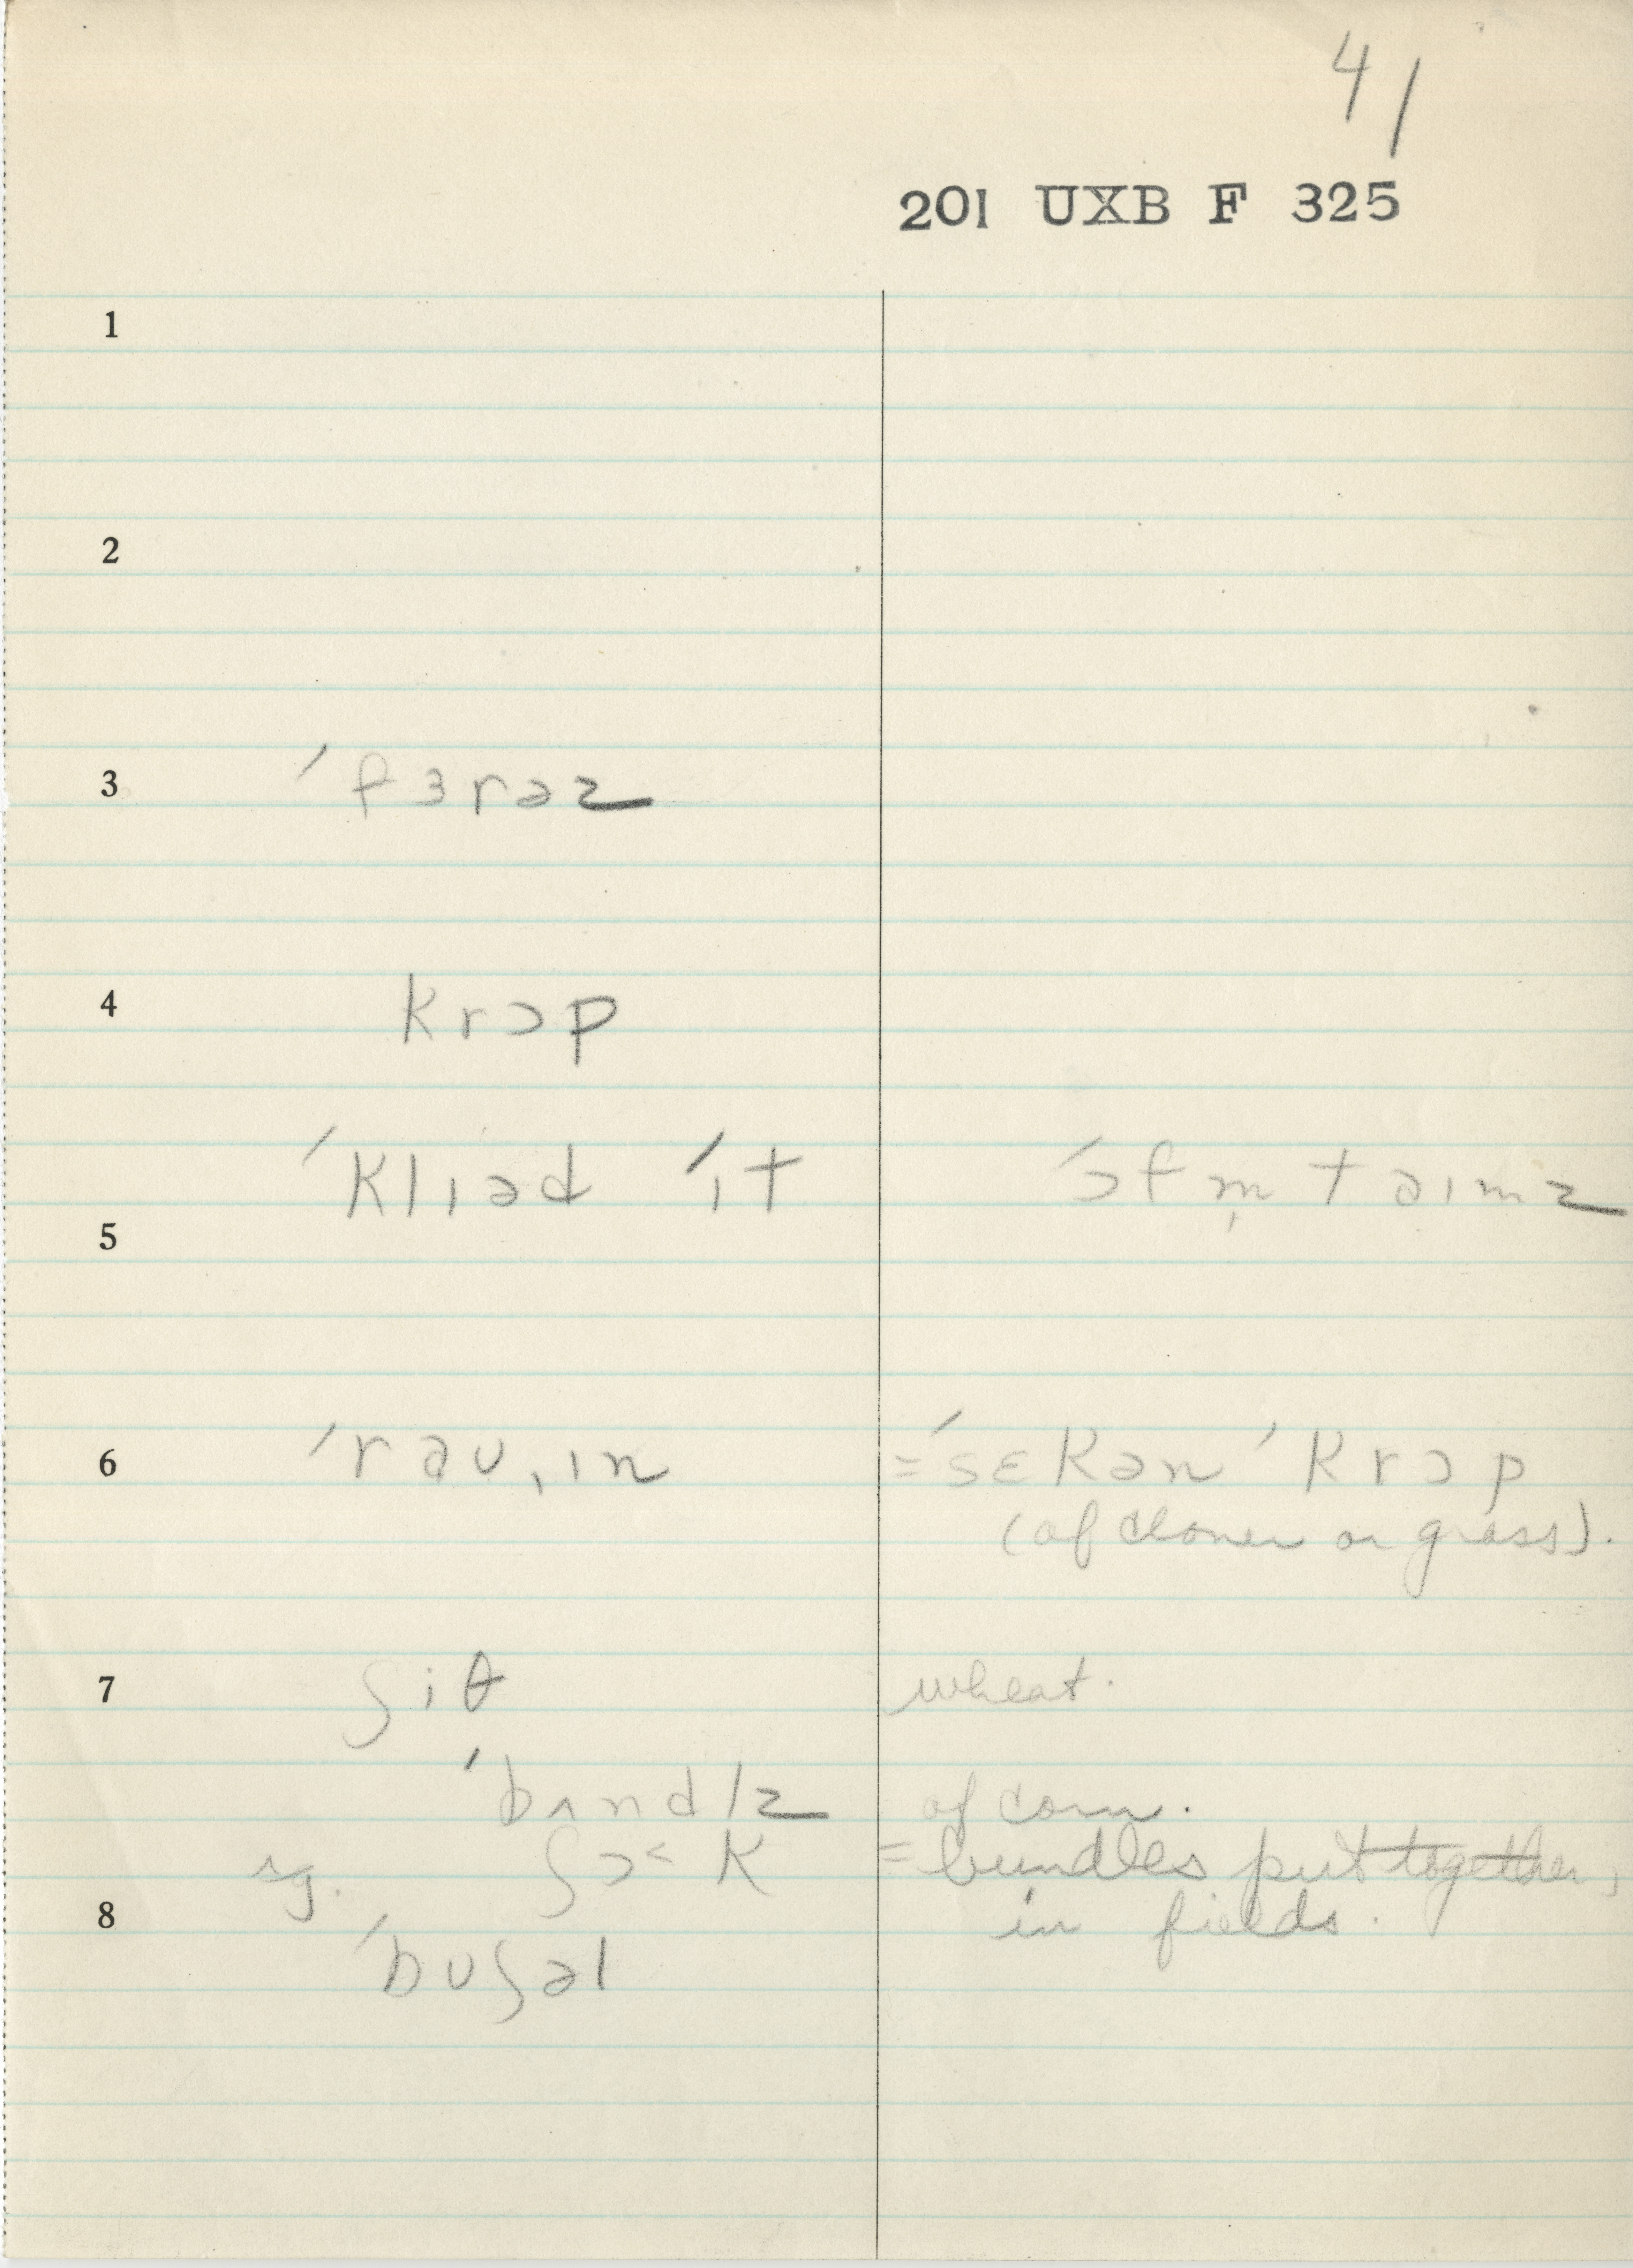 41
201 UXB F 325
1
2
3 ˈfɜrəz
4 krɔp
ˈkliəd ˈit ˈɔfm̩ təimz
5
6 ˈrəʊˌɪn =ˈsɛkən ˈkrɔp
(of clover or grass).
7 ʃiθ wheat.
ˈbʌndlz of corn.
sg. ʃɔ˂k = bundles put together,
8 in fields.
ˈbʊʃəl